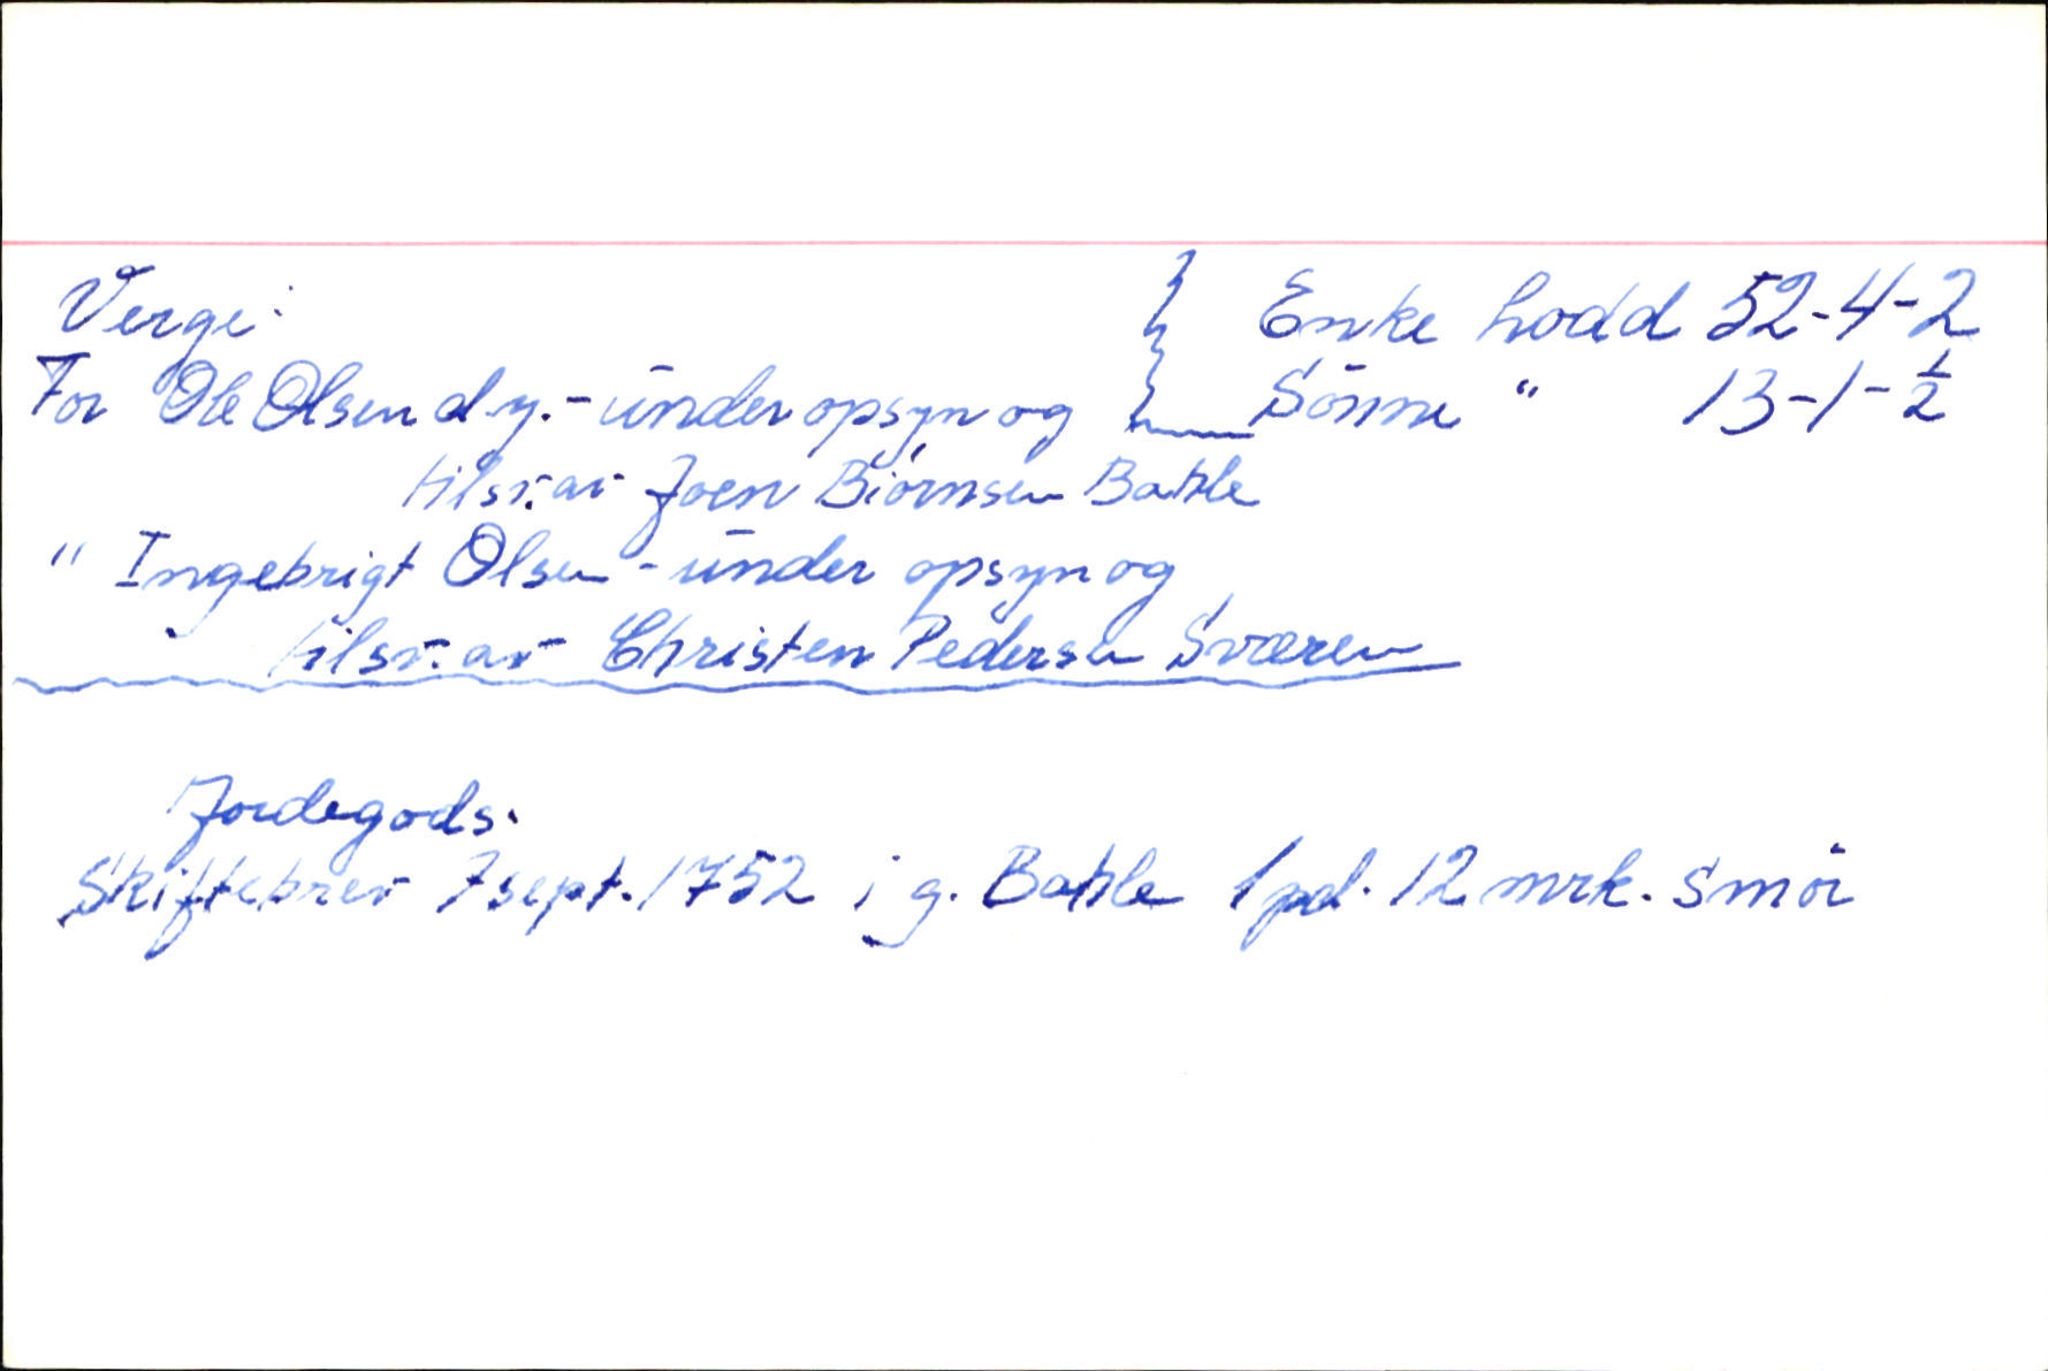 Verge:
} Enke lodd 52-4-2
For Ole Olsen d.y. - under opsyn og
Sönne " 13-1-½
tilsv. av Joen Biörnsen Bahle
" Ingebrigt Olsen - under opsyn og
tilsv. av Christen Pedersen Sværen
Jordegods.
Skiftebrev 7 sept. 1752 i g. Bahle 1 pd. 12 mrk. smör